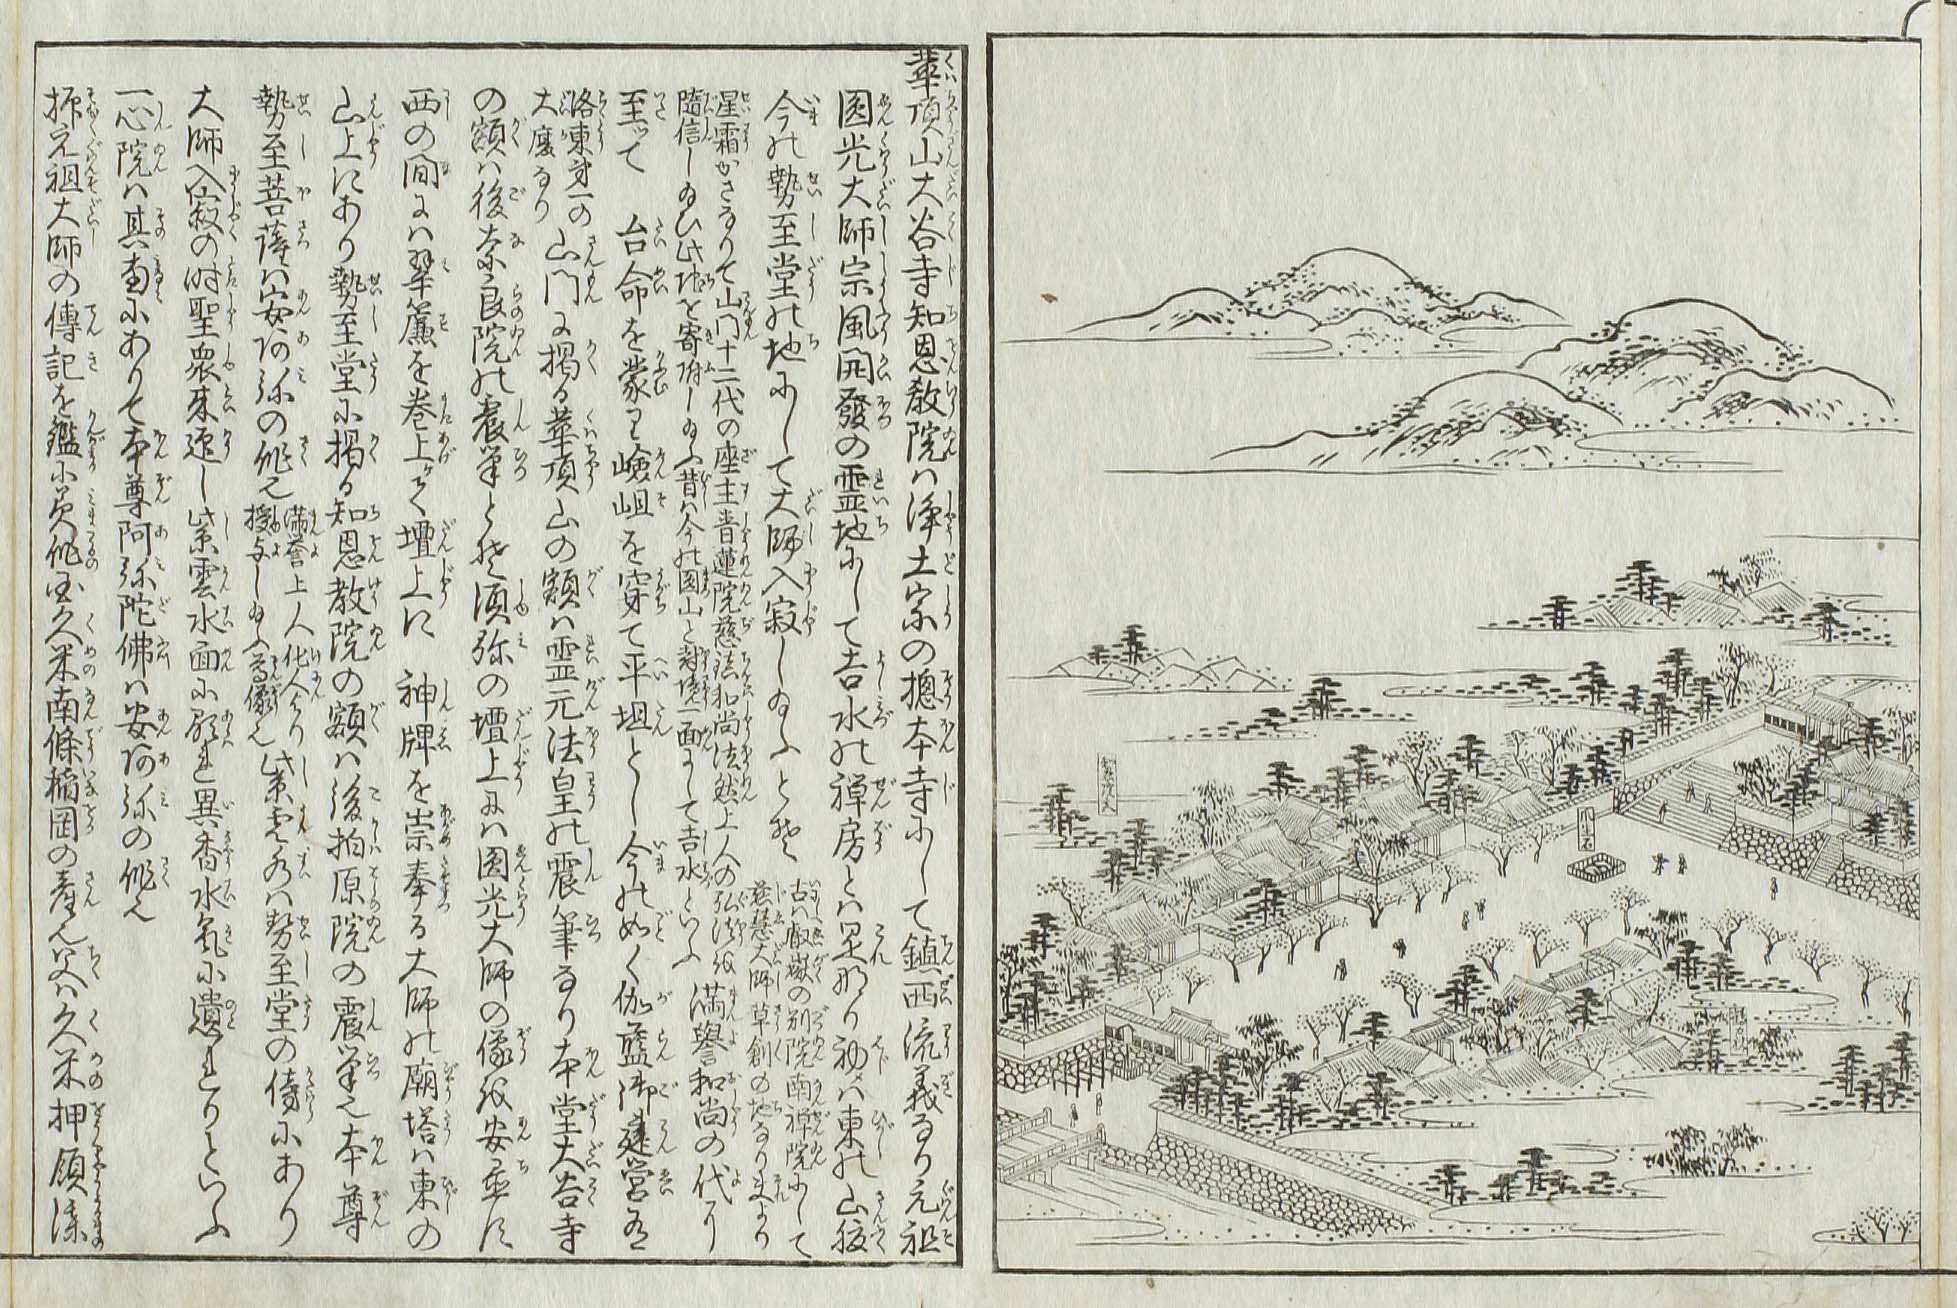 瓜生石
華頂山大谷寺知恩教院ハ浄土宗の摠本寺にして鎮西流義なり元祖
圓光大師宗風開發の霊地にして吉水の禅房とハ是なり初めハ東の山腹
今の勢至堂の地にして大師入寂し給ふとぞ
古ハ叡嶽の別院南禅院にして
慈慧大師草創の地なり夫より
星霜かさなりて山門十二代の座主青蓮院慈鎮和尚法然上人の弘法を
隨信し給ひ此地を寄附し給ふ昔ハ今の圓山と封境一面にして吉水といふ
満譽和尚の代に
至つて 台命を蒙り嶮岨を穿て平坦とし今の如く伽藍御建営有
洛東第一の
大廈なり
山門に掲る華頂山の額ハ霊元法皇の震筆なり本堂大谷寺
の額ハ後奈良院の震筆とぞ須弥の壇上にハ圓光大師の像を安置し
西の間にハ翠簾を巻上て壇上に 神牌を崇奉る大師の廟塔ハ東の
山上にあり勢至堂に掲る知恩教院の額ハ後柏原院の震筆也本尊
勢至菩薩ハ安阿弥の作也
満譽上人化人より
授与し給ふ尊像也
紫雲水ハ勢至堂の傍にあり
大師入寂の時聖衆来迎し紫雲水面に影れ異香水気に遺れりといふ
一心院ハ其南にありて本尊阿弥陀佛ハ安阿弥の作也
抑元祖大師の傳記を鑑に美作国久米南條稲岡の産也父ハ久米押領使